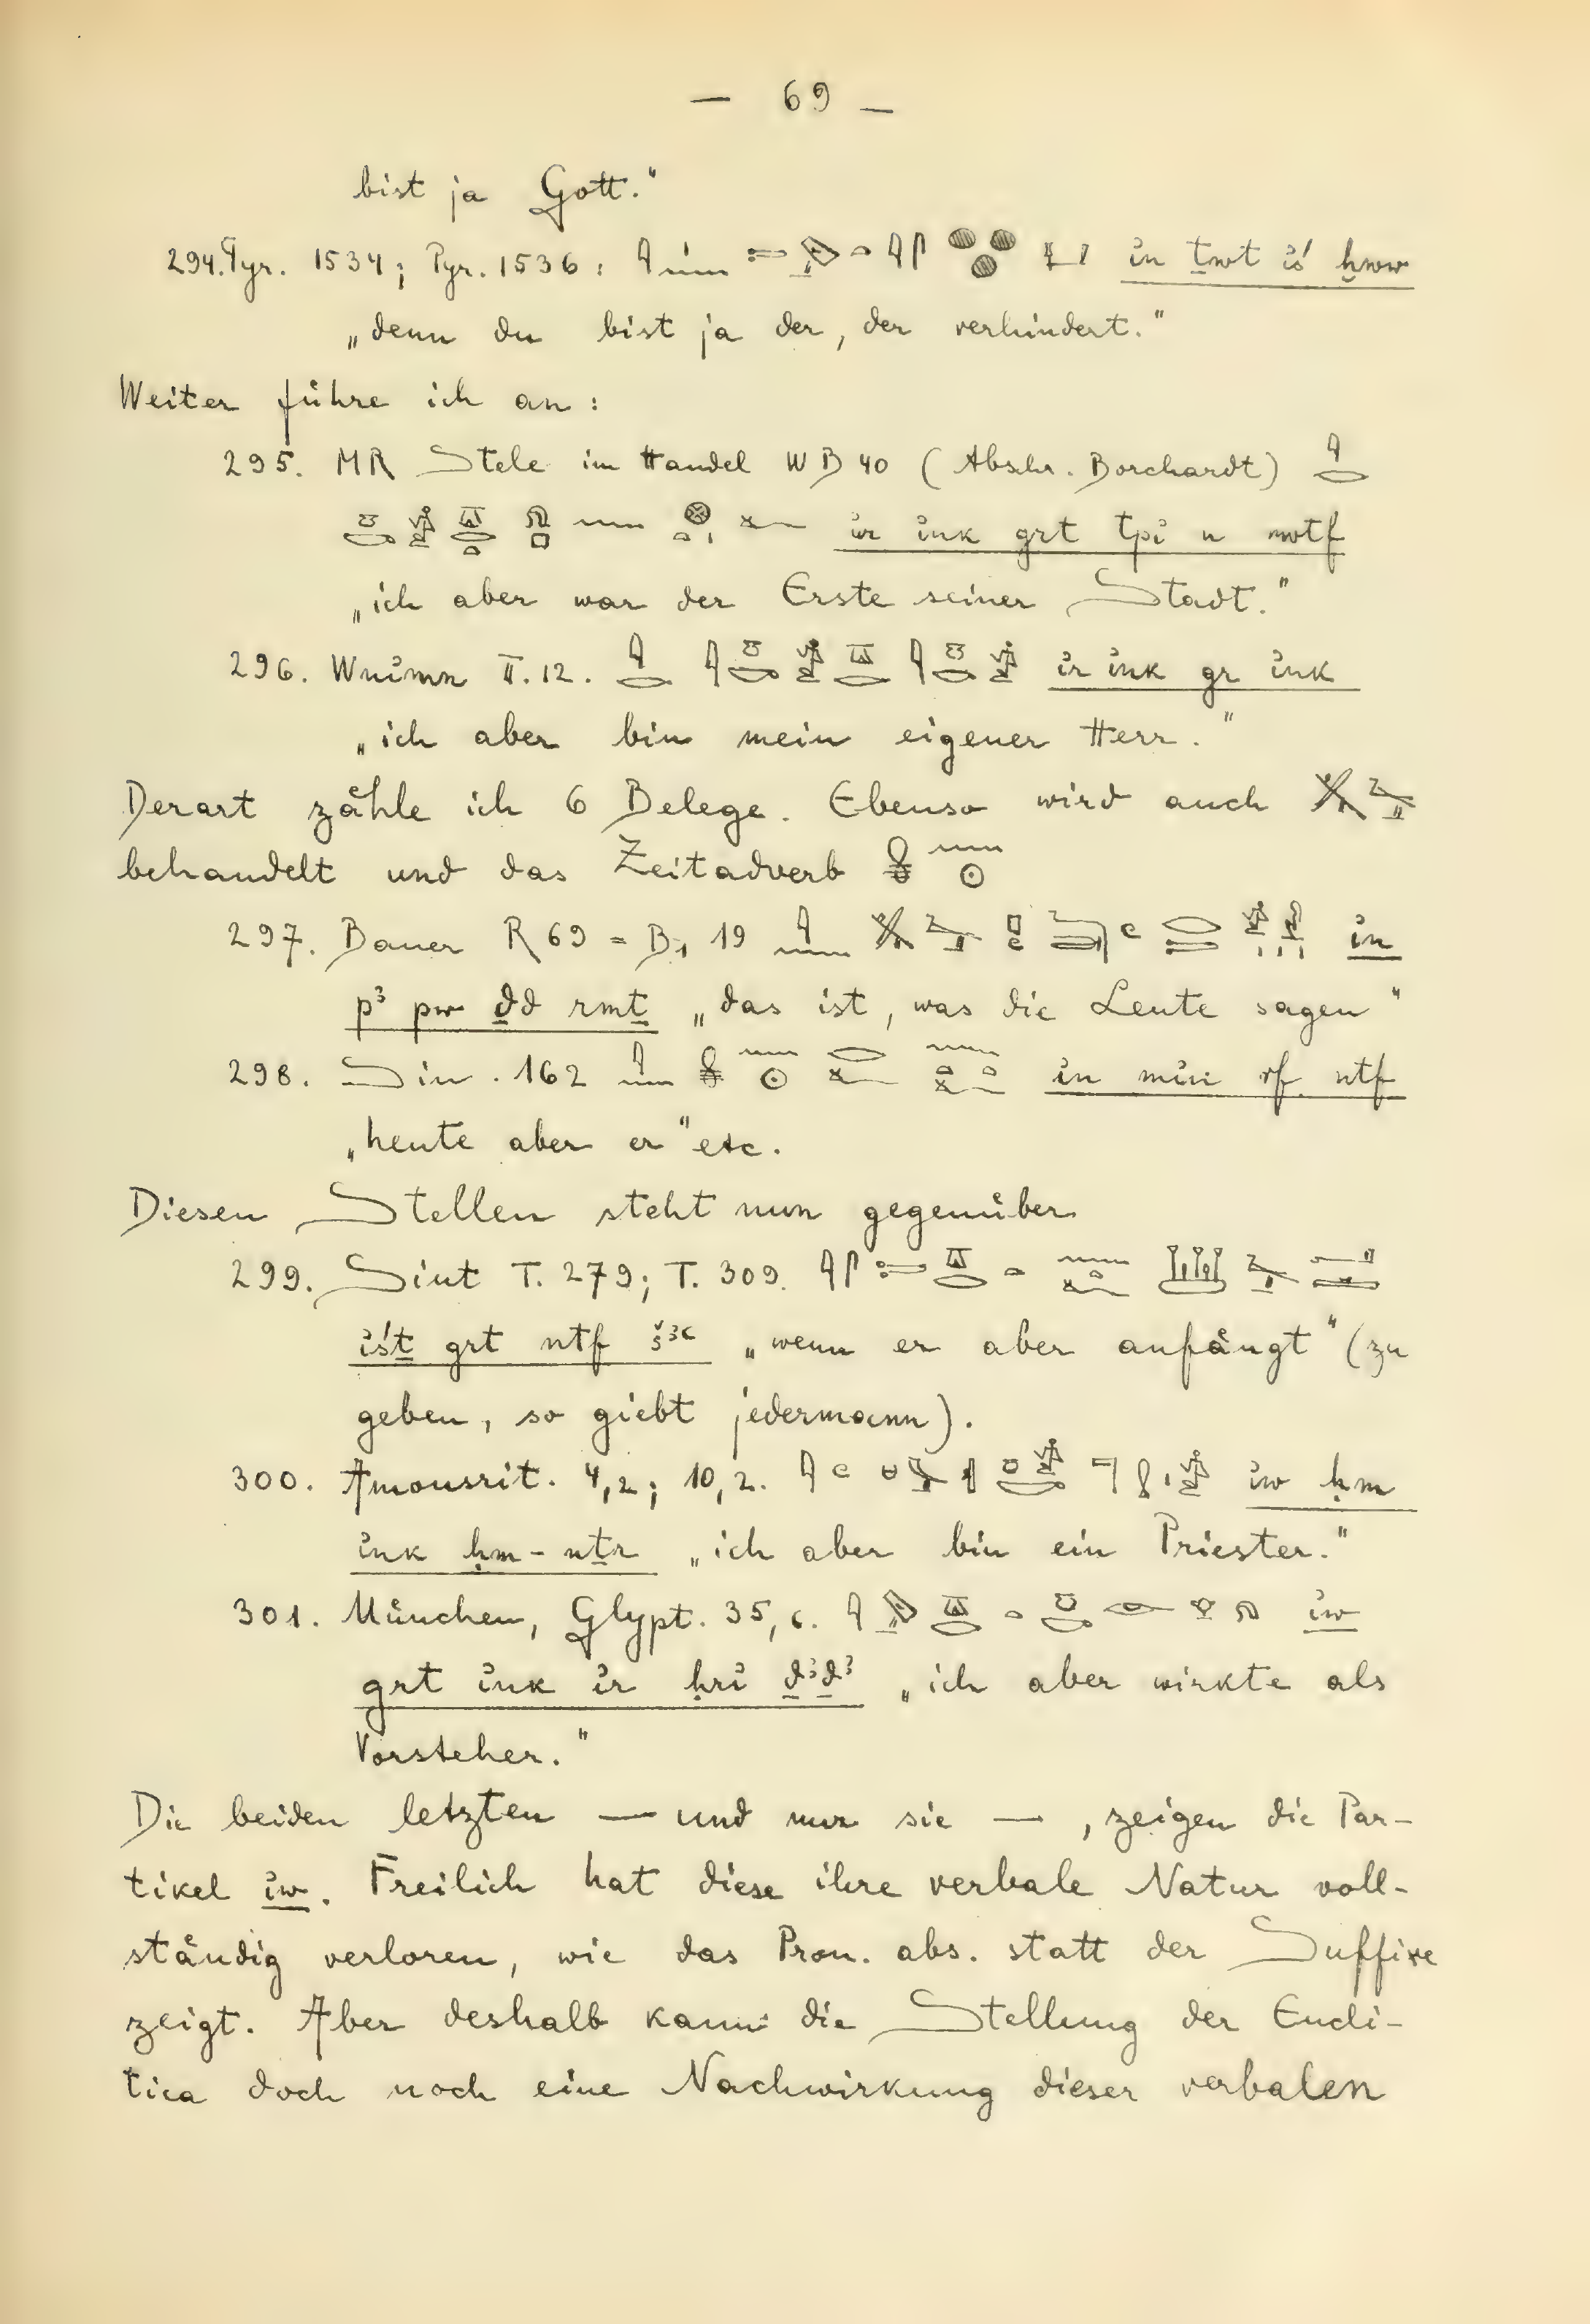 — 69 —
bist ja Gott."
294. Pyr. 1534; Pyr. 1536: in ṯwt iś ḫww
„denn du bist ja der, der verhindert."
Weiter führe ich an:
295. MR Stele im Handel WB 40 (Abschr. Borchardt)
ir ink grt tpi n nwtf
„ich aber war der Erste seiner Stadt."
296. Wnimn II. 12. ir ink gr ink
„ich aber bin mein eigener Herr."
Derart zähle ich 6 Belege. Ebenso wird auch
behandelt und das Zeitadverb
297. Bauer R 69 = B1 19 in
pꜣ pw ḏd rmṯ „das ist, was die Leute sagen"
298. Sin. 162 in min rf ntf
„heute aber er" etc.
Diesen Stellen steht nun gegenüber
299. Siut T. 279; T. 309.
iśṯ grt ntf šꜣꜥ „wenn er aber anfängt" (zu
geben, so giebt jedermann).
300. Amonsrit. 4,2; 10,2. iw ḥm
ink ḥm-nṯr „ich aber bin ein Priester."
301. München, Glypt. 35, 6. iw
grt ink ir ḥri ḏꜣḏꜣ „ich aber wirkte als
Vorsteher."
Die beiden letzten — und nur sie —, zeigen die Par-
tikel iw. Freilich hat diese ihre verbale Natur voll-
ständig verloren, wie das Pron. abs. statt der Suffixe
zeigt. Aber deshalb kann die Stellung der Encli-
tica doch noch eine Nachwirkung dieser verbalen